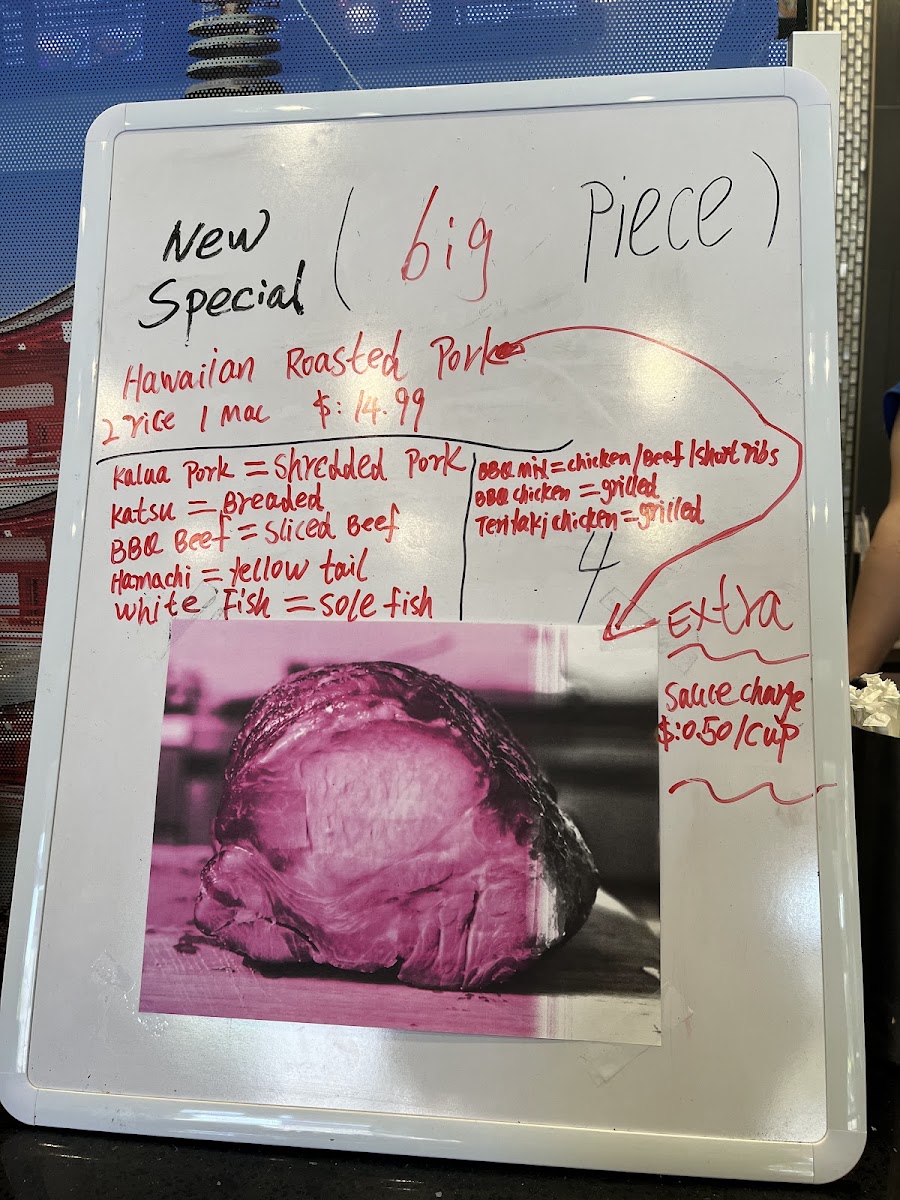 New
Special ( big Piece )
Hawaiian Roasted Pork
2 rice 1 Mac $: 14.99
Kalua Pork = Shredded Pork
Katsu = Breaded
BBQ Beef = Sliced Beef
Hamachi = Yellow tail
White Fish = Sole fish
BBQ mix = chicken / Beef / short ribs
BBQ chicken = grilled
Teritaki chicken = grilled
4
Extra
Sauce charge
$: 0.50 / Cup